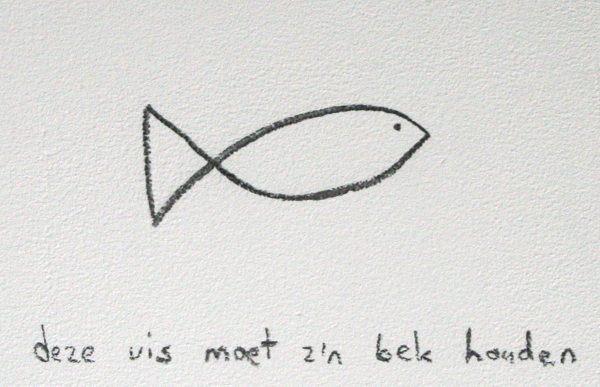 deze vis moet z'n bek houden